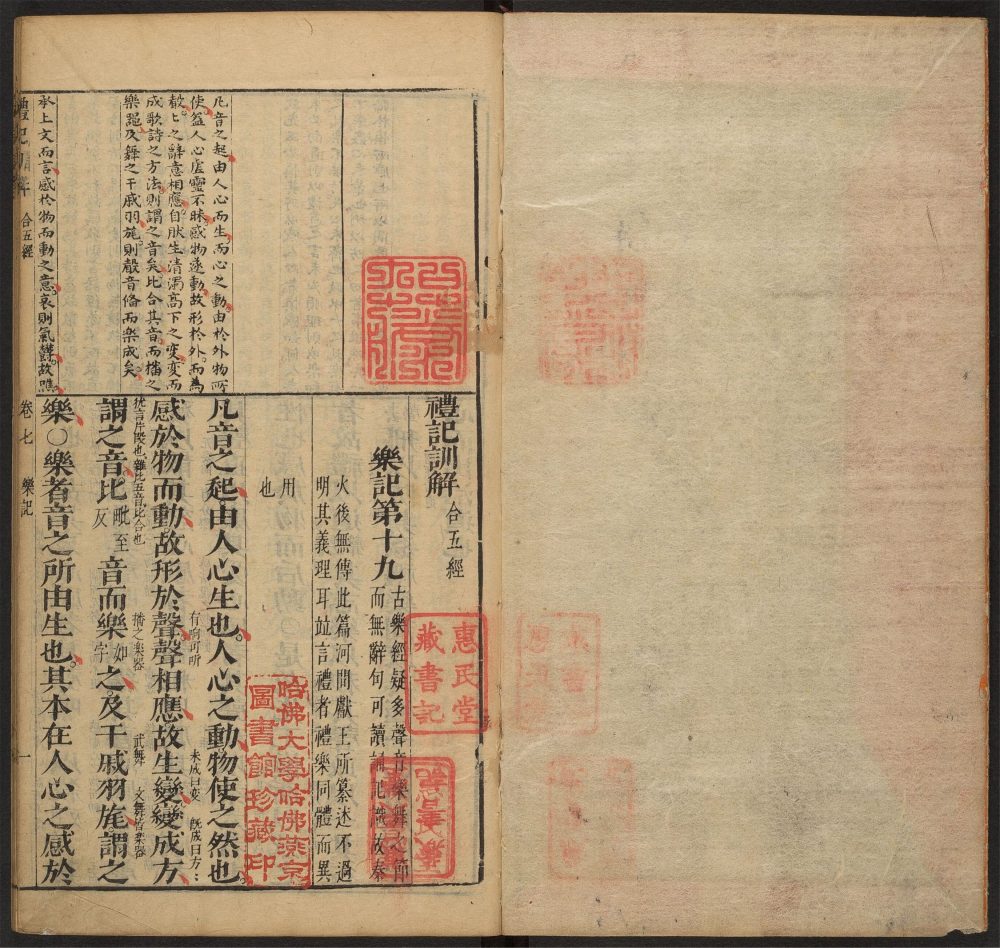 禮記訓解 合五經
樂記第十九
古樂經疑多聲音樂舞之節
而無辭句可讀誦記識故秦
火後無傳此篇河間獻王所纂述不過
明其義理耳
言禮者禮樂同體而異
用
也
凡音之起由人心生也人心之動物使之然也
感於物而動故形於聲聲相應故生變變成方
有響可聽
未成曰變 旣成曰方
謂之音比
音而樂
之及干戚羽旄謂之
猶言片段也雜比五音比合也
毗至
反
播之樂器
如
字
武舞 文舞皆樂器
樂○樂者音之所由生也其本在人心之感於
凡音之起由人心而生而心之動由於外物所
使蓋人心虛靈不昧感物逐動故形於外而為
聲聲之辭意相應自狀生清濁高下之變變而
成歌詩之方法則謂之音矣比合其音而播之
樂器及舞之干戚羽旄則聲音備而樂成矣
承上文而言感於物而動之意哀則氣鬱故噍
禮記訓解 合五經
卷七 樂記 一
惠民堂
藏書記
哈佛大學哈佛燕京
圖書館珍藏印